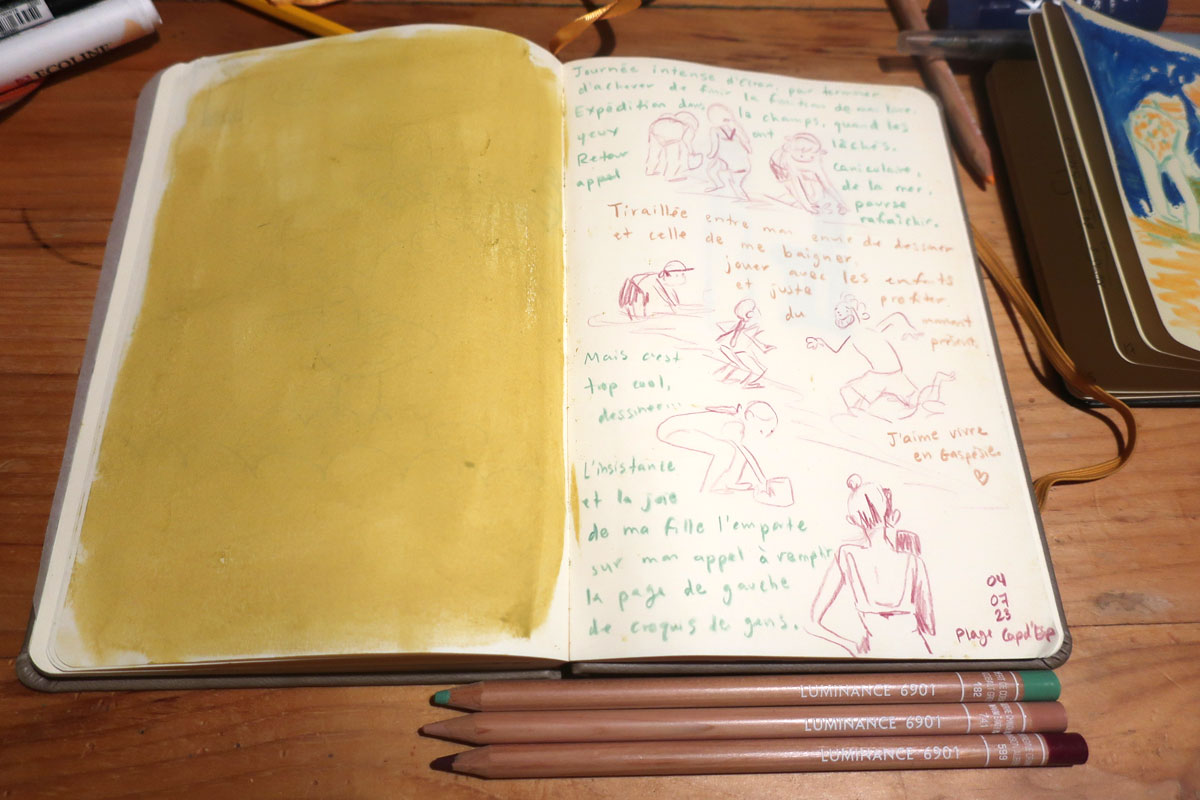 ECOLINE
Journée intense d'écran, terminer,
d'achever de finir la finition de mon livre.
Expédition dans le champs, quand les
yeux ont lâchés.
Retour caniculaire,
appel de la mer,
pour se
rafraîchir.
Tiraillée entre mon envie de dessiner
et celle de me baigner,
jouer avec les enfants
et juste profiter
du moment
présent.
Mais c'est
trop cool,
dessiner...
J'aime vivre
en Gaspésie.
L'insistance
et la joie
de ma fille l'emporte
sur mon appel à remplir
la page de gauche
de croquis de gens.
04
07
23
Plage Cap d'Esp
LUMINANCE 6901
182
LUMINANCE 6901
LUMINANCE 6901
599